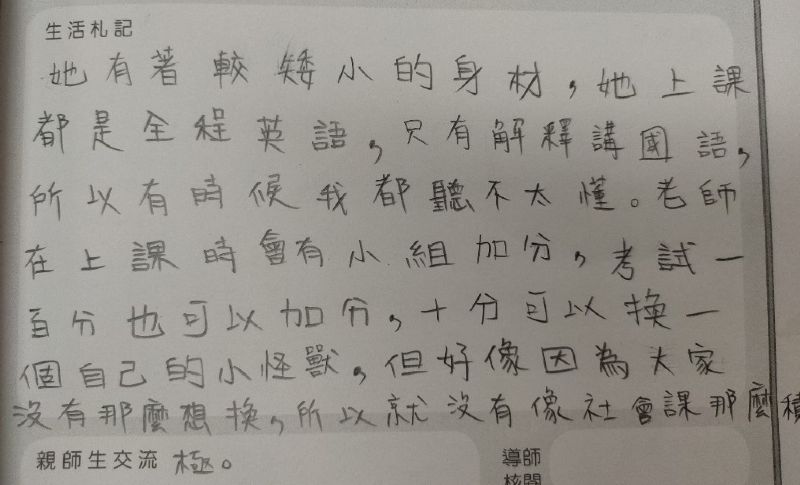 生活札記
她有著較矮小的身材，她上課
都是全程英語，只有解釋講國語，
所以有時候我都聽不太懂。老師
在上課時會有小組加分，考試一
百分也可以加分，十分可以換一
個自己的小怪獸，但好像因為大家
沒有那麼想換，所以就沒有像社會課那麼積
親師生交流 極。
導師